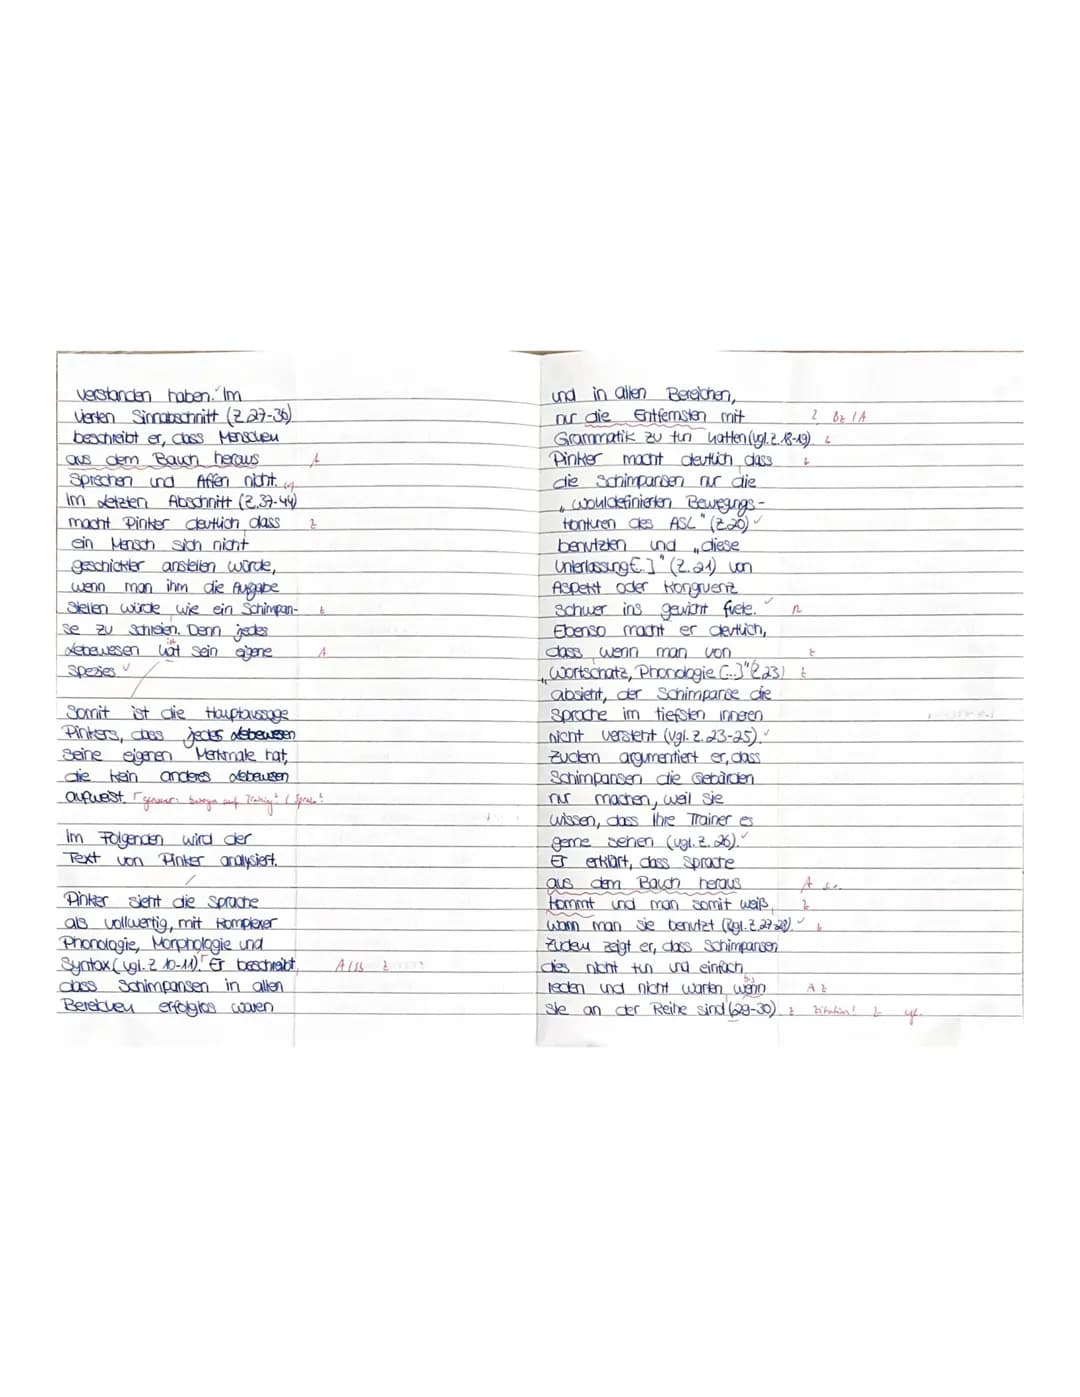 verstanden haben. Im
vierten Sinnabschnitt (Z.27-36)
beschreibt er, dass Menschen
aus dem Bauch heraus A
Sprechen und Affen nicht.
Im Letzten Abschnitt (Z.37-44)
macht Pinker deutlich, dass z
ein Mensch sich nicht
geschickter anstellen würde,
wenn man ihm die Aufgabe
Stellen würde wie ein Schimpan-
se zu schreien. Denn jedes
Lebewesen hat sein eigene A
Spezies
Somit ist die Hauptaussage
Pinkers, dass jedes Lebewesen
seine eigenen Merkmale hat,
die kein anderes Lebewesen
aufweist. genauer:
Im Folgenden wird der
Text von Pinker analysiert.
Pinker sieht die Sprache
als vollwertig, mit komplexer
Phonologie, Morphologie und
Syntax (vgl. Z 10-11). Er beschreibt,
dass Schimpansen in allen
Bereichen erfolglos waren
und in allen Bereichen,
nur die Entfernsten mit ? Bz/A
Grammatik zu tun hatten (vgl. Z. 18-19).
Pinker macht deutlich dass
die Schimpansen nur die
„wouldefinierten Bewegungs-
konturen des ASL" (Z.20)
benutzten und „diese
Unterlassung[.]" (Z.21) von
Aspekt oder Kongruenz
schwer ins gewicht fiele.
Ebenso macht er deutlich,
dass wenn man von
„Wortschatz, Phonologie [...]" (Z.23)
absieht, der Schimpanse die
Sprache im tiefsten inneren
nicht versteht (vgl. Z. 23-25).
Zudem argumentiert er, dass
Schimpansen die Gebärden
nur machen, weil sie
wissen, dass Ihre Trainer es
gerne sehen (vgl. Z. 26).
Er erklärt, dass Sprache
aus dem Bauch heraus A
kommt und man somit weiß,
wann man sie benutzt (vgl. Z. 27-28).
Zudem zeigt er, dass Schimpansen
dies nicht tun und einfach
reden und nicht warten wenn A z
sie an der Reihe sind (29-30). Zitation!